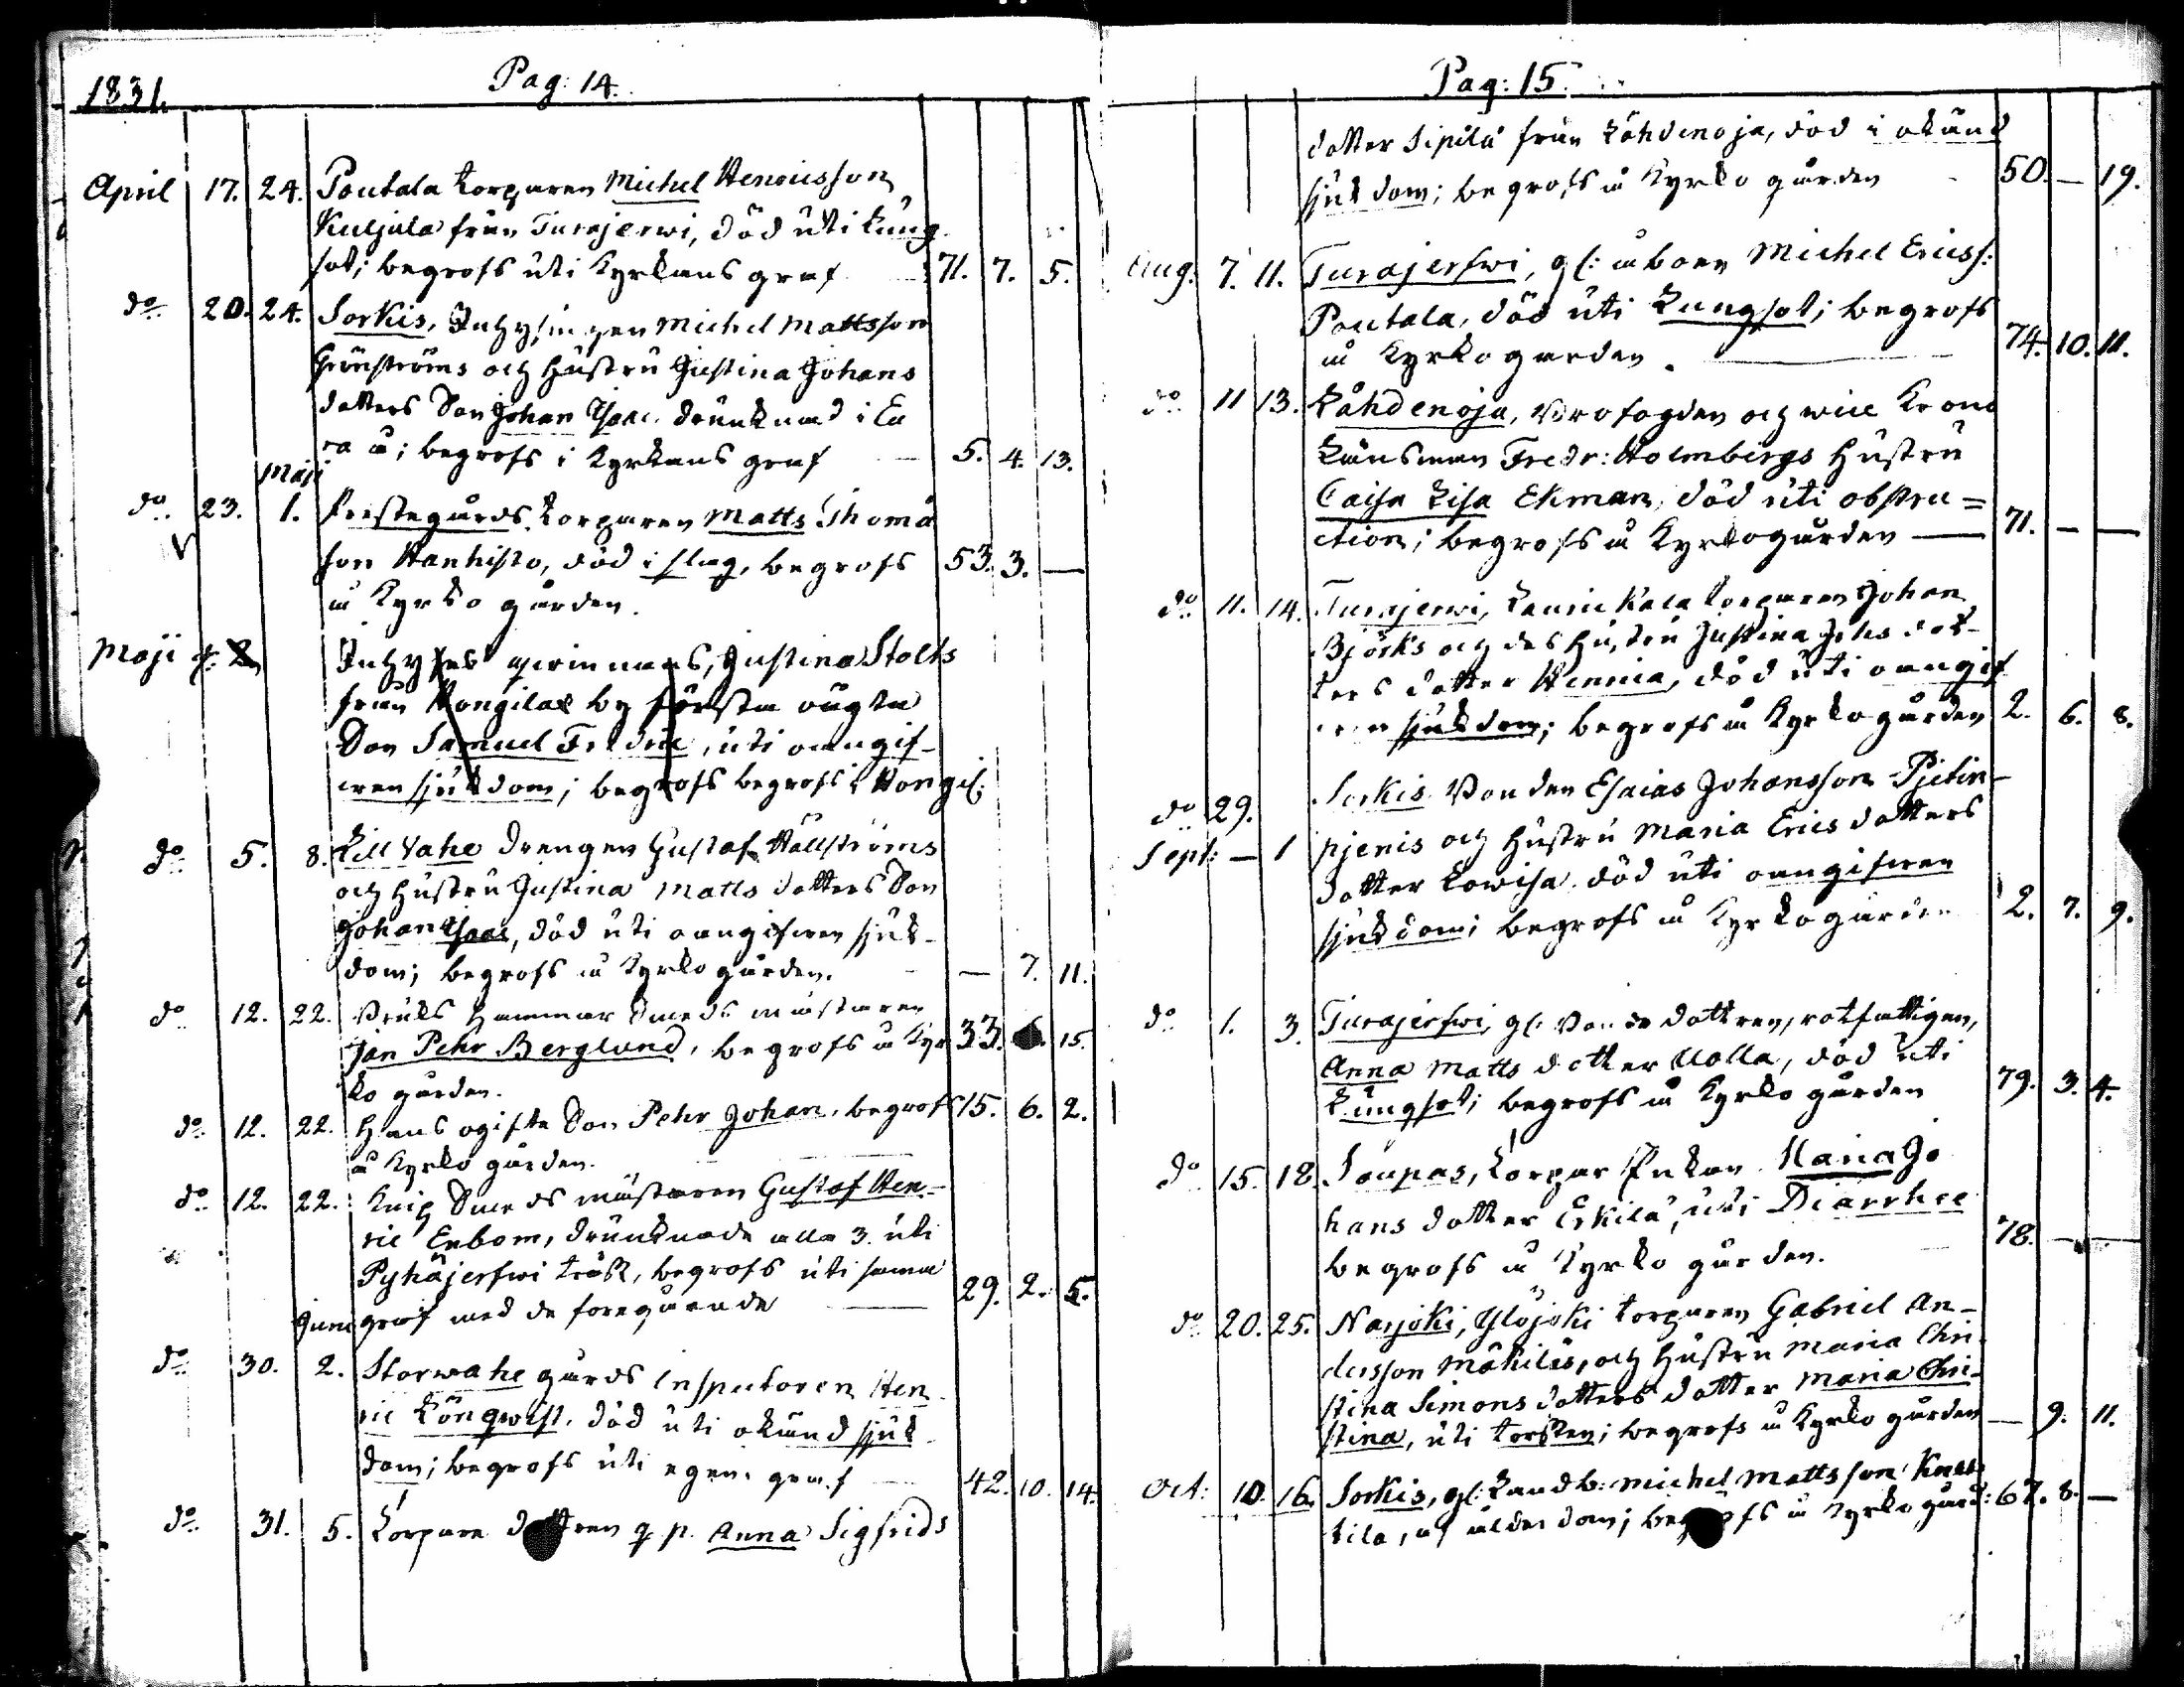 1831.
Pag: 14.
April 17. 24. Poutala torparen Michel Henricsson
Kuljala från Turajerwi, död uti lung
sot; begrofs uti Kyrkans graf 71. 7. 5.
do 20. 24. Sorkis, Inhysingen Michel Mattsson
Grönströms och hustru Justina Johans
dotters Son Johan Isaac drunknad i Eu
ra å; begrofs i Kyrkans graf — 5. 4. 13.
Maji
do 23. 1. Prestegårds torparen Matts Thomæ
son Hanhisto, död i slag, begrofs 53. 3. —
å Kyrko gården.
Maji
Inhyses qwinnans, Justina Stolts
från Hongilax by första ougta
Son Samuel Fredric, uti oangif-
wen sjukdom; begrofs begrofs i Hongil:
do 5. 8. Lill Vahe drengen Gustaf Hällströms
och hustru Justina Matts dotters Son
Johan Isaac, död uti oangifwen sjuk-
dom; begrofs å Kyrko gården. — 7. 11.
do 12. 22. Bruks Hammar Smeds mästaren
Jan Pehr Berglund, begrofs å Kyr 33. 15.
ko gården.
do 12. 22. Hans ogifte Son Pehr Johan, begrofs 15. 6. 2.
å Kyrko gården.
do 12. 22. Knip Smeds mästaren Gustaf Hen-
ric Enbom, drunknade alla 3. uti
Pyhäjerfwi träsk, begrofs uti samma 29. 2. 5.
Junii graf med de foregående
do 30. 2. Storwahe gårds inspectoren Hen
ric Lönqwist, död uti okänd sjuk
dom; begrofs uti egen graf 42. 10. 14.
do 31. 5. Torpare dottren q. p. Anna Sigfrids
Pag: 15.
dotter Sipilä från Lähdenoja, död i okänd
sjukdom; begrofs å Kyrko gården 50. — 19.
Aug. 7. 11. Turajerfwi, gl: åboen Michel Ericss:
Poutala, död uti Lungsot; begrofs
å Kyrkogården. 74. 10. 11.
do 11 13. Lähdenoja, Brofogden och vice Krono
Länsman Fredr: Holmbergs hustru
Caisa Lisa Ekman, död uti obstru=
ction; begrofs å Kyrkogården — 71. — —
do 11. 14. Turajerwi, Laurickala torparen Johan
Björks och des hustru Justina Johs dot-
ters dotter Hennica, död uti oangif
wen sjukdom; begrofs å Kyrkogården 2. 6. 8.
do 29. Sorkis Bonden Esaias Johansson Pjetin-
Sept: — 1 pjenis och hustru Maria Erics dotters
dotter Lowisa död uti oangifwen
sjukdom; begrofs å Kyrkogården 2. 7. 9.
do 1. 3. Turajerfwi, gl: Bonde dottren, rotfattigen,
Anna Matts dotter Uolla, död uti
Lungsot; begrofs å Kyrko gården 79. 3. 4.
do 15. 18. Soupas, torpar Enkan Maria Jo
hans dotter Erkilä, uti Diarrhee
begrofs å Kyrko gården. 78. — —
do 20. 25. Narjoki, Ylöjoki torparen Gabriel An-
dersson Mäkiläs, och hustru Maria Chri
stina Simons dotters dotter Maria Chri-
stina, uti torsken; begrofs å Kyrko gården — 9. 11.
Oct: 10. 16. Sorkis, gl: Landb: Michel Mattsson
tila, af ålderdom; begrofs å Kyrko gård: 67. 8. —